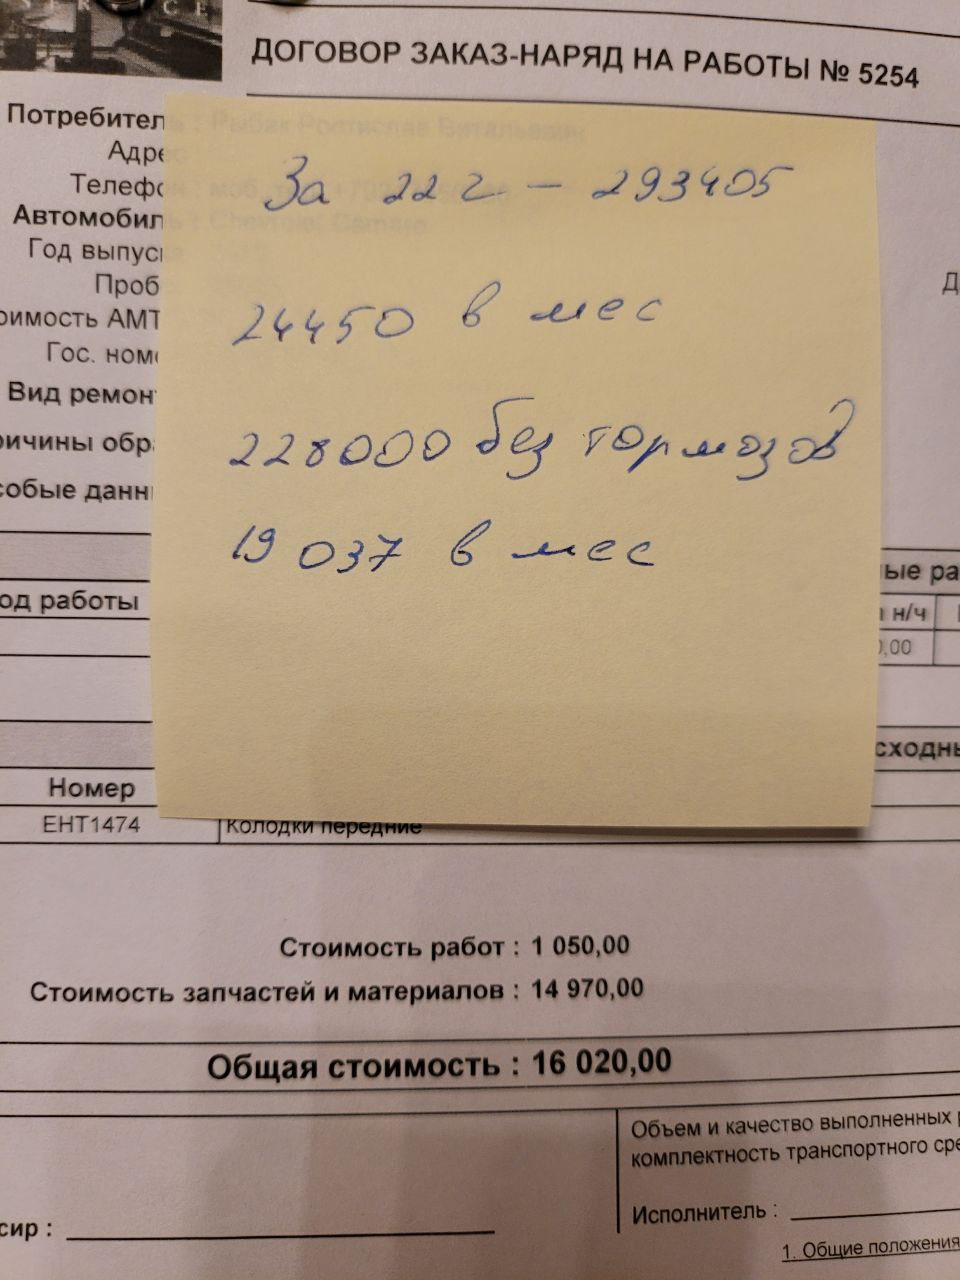 SERVICE
ДОГОВОР ЗАКАЗ-НАРЯД НА РАБОТЫ № 5254
Потребител
Адре
Телефо
Автомобил
Год выпус
Проб
оимость АМТ
Гос. номе
Вид ремон
ричины обра
собые данн
За 22 г - 293405
24450 в мес
228000 без тормозов
19 037 в мес
ые ра
од работы
н/ч
0,00
сходны
Номер
EHT1474 Колодки передние
Стоимость работ : 1 050,00
Стоимость запчастей и материалов : 14 970,00
Общая стоимость : 16 020,00
Объем и качество выполненных
комплектность транспортного сре
Исполнитель :
сир :
1. Общие положения